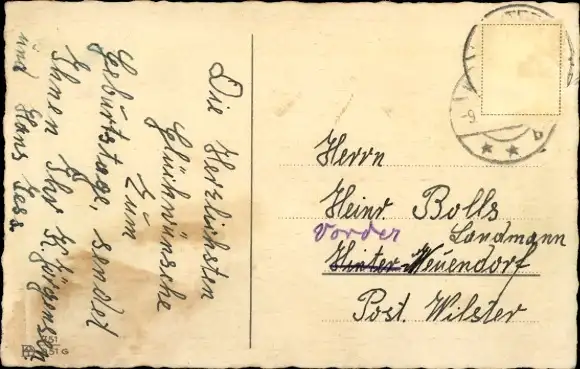 Die Herzlichsten
Glückwünsche
zum
Geburtstage, sendet
Ihnen Ihr K. Jürgensen
und Hans Jess.
Herrn
Heinr. Bolls
Vorder Landmann
Hinter-Neuendorf
Post. Wilster